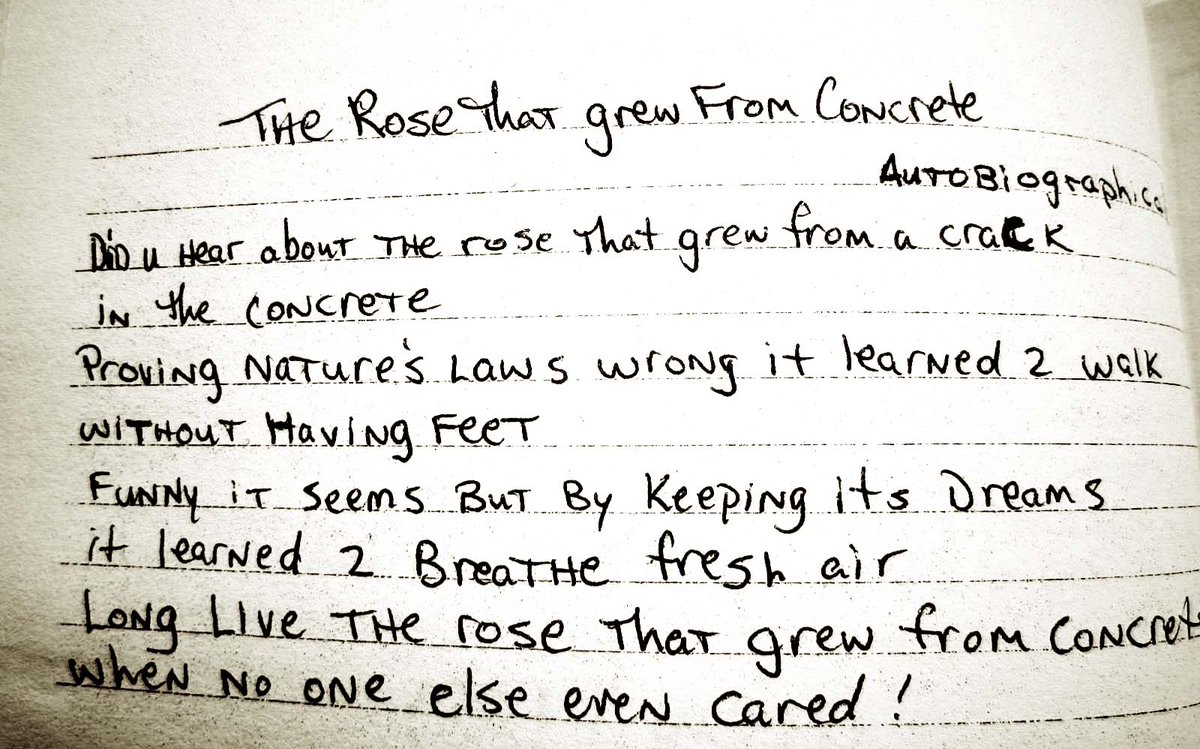 THe Rose That grew From Concrete
AUTOBiographica
DiD u Hear about THe rose That grew from a crack
in the concreTe
Proving Nature's Laws wrong it learned 2 walk
WiTHOUT Having FeeT
FUNNy iT seems BUT By Keeping iTs Dreams
it learned 2 BreaTHe fresh air
Long Live THe rose THaT grew from concrete
when no one else even cared!